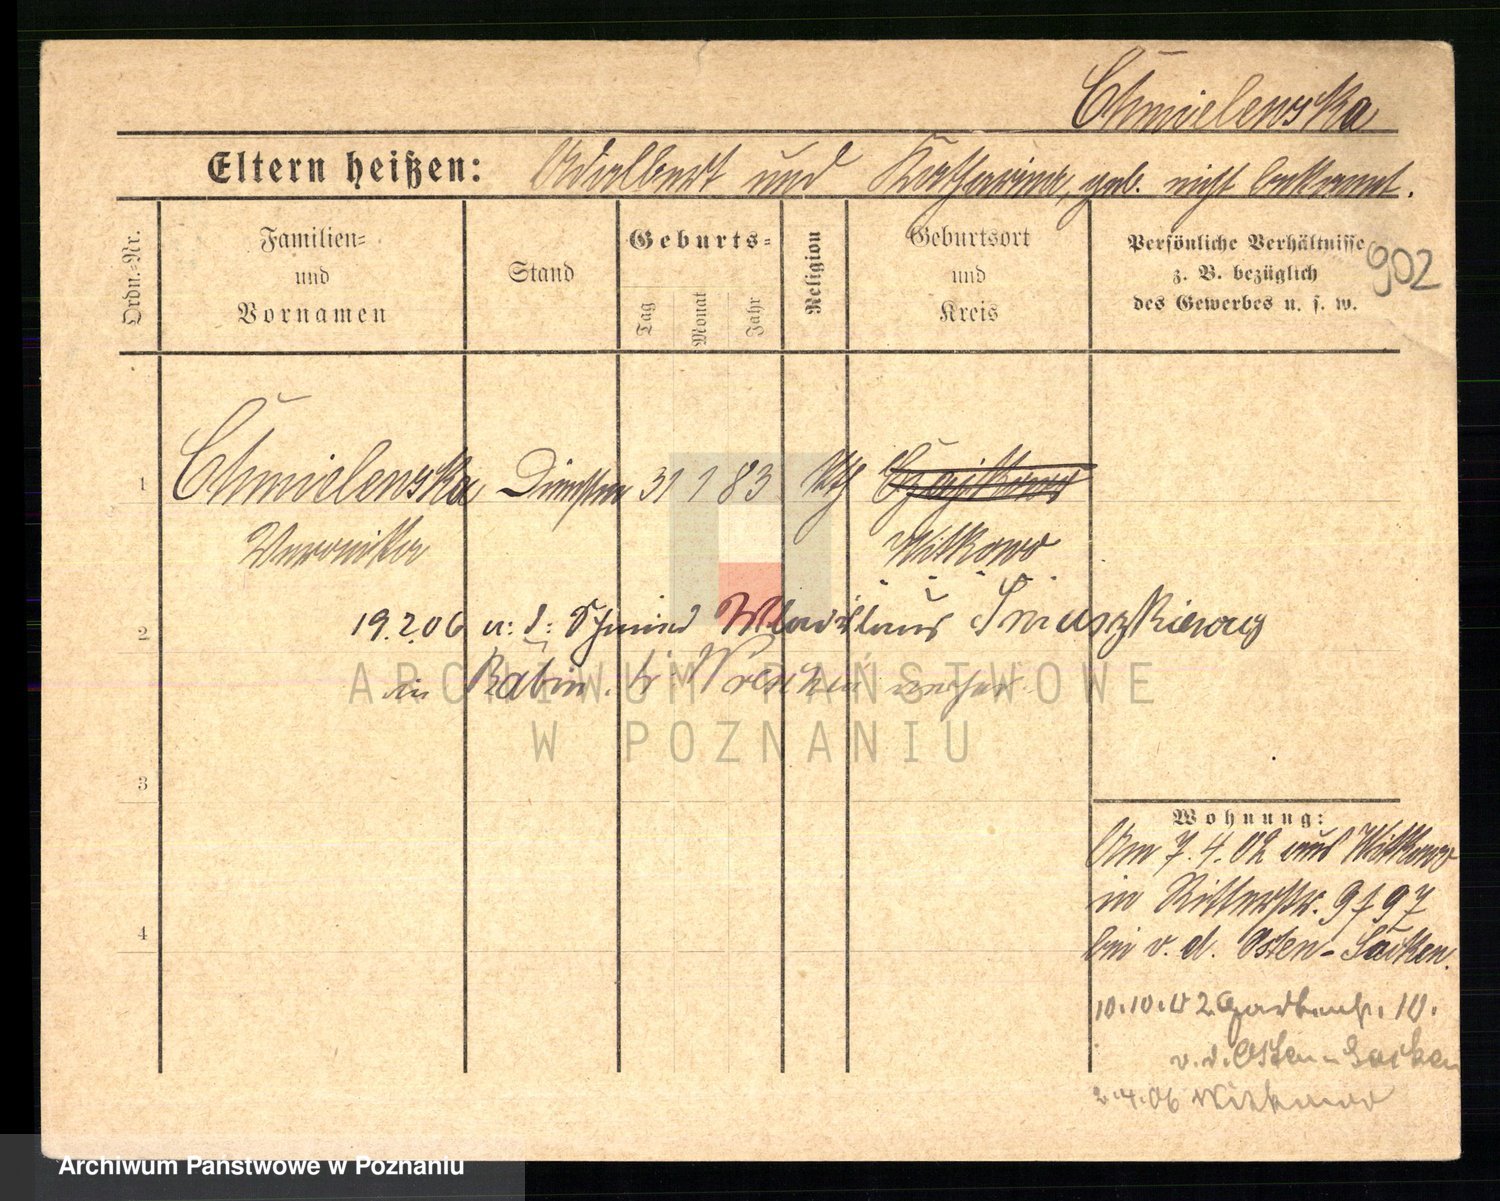 Chmielewska
Eltern heißen: Adalbert und Katharina, geb. nicht bekannt.
Ordn.-Nr.
Familien-
und
Vornamen
Stand
Geburts-
Tag
Monat
Jahr
Religion
Geburtsort
und
Kreis
Persönliche Verhältnisse
z. B. bezüglich
des Gewerbes u. s. w.
902
1 Chmielewska 31 1 83 Kth
Veronika Witkowo
2 19.2.06 m. d. Schmied Wladislaus
in Kr. Wreschen verh.
3
4
Wohnung:
Am 7.4.02 aus Witkowo
in Ritterstr. 9
bei v. d. Osten-Sacken.
10.10.02 Gartenstr. 10.
v. d. Osten-Sacken
2.4.06 Witkowo
ARCHIWUM PAŃSTWOWE
W POZNANIU
Archiwum Państwowe w Poznaniu